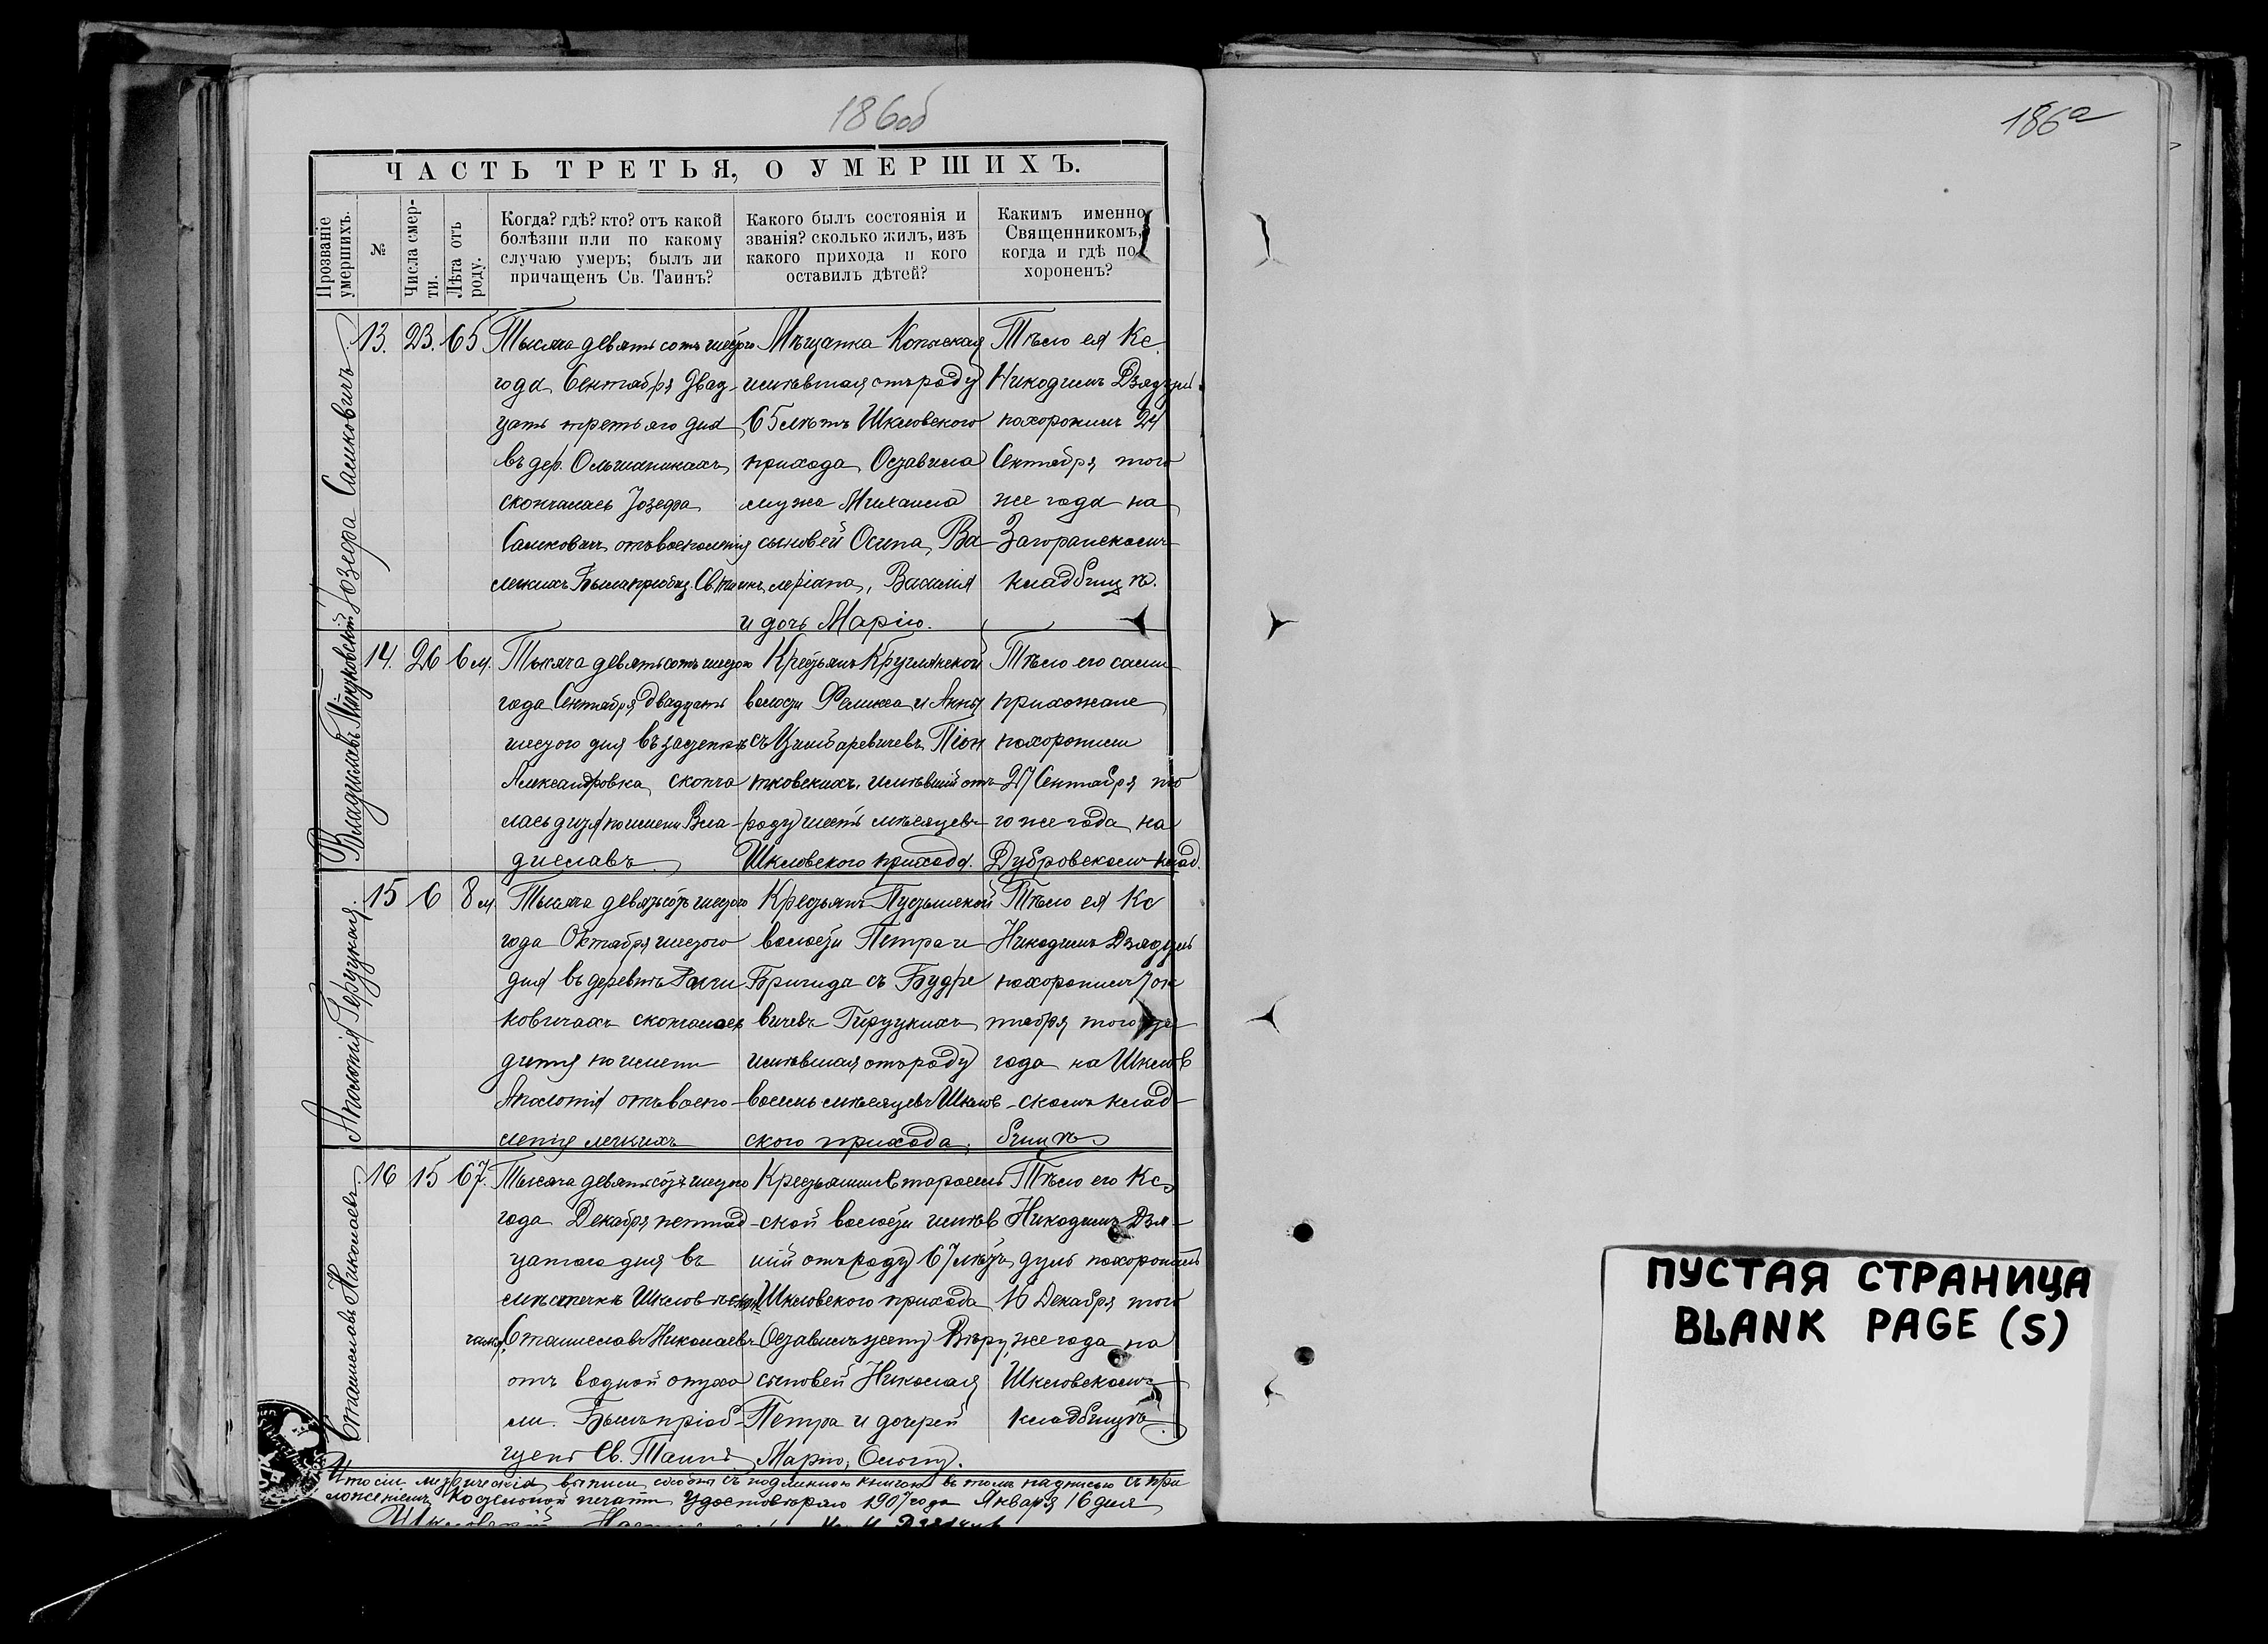 186об
186а
ЧАСТЬ ТРЕТЬЯ, О УМЕРШИХЪ.
Прозваніе умершихъ.
№
Числа смерти.
Лѣта отъ роду.
Когда? гдѣ? кто? отъ какой
болѣзни или по какому
случаю умеръ; былъ ли
причащенъ Св. Таинъ?
Какого былъ состоянія и
званія? сколько жилъ, изъ
какого прихода и кого
оставилъ дѣтей?
Какимъ именно
Священникомъ,
когда и гдѣ по-
хороненъ?
Іозефа Самковичъ.
13. 23. 65
Тысяча девятьсотъ шестого
года Сентября двад-
цать третьяго дня
въ дер. Ольшаникахъ
скончалась Іозефа
Самковичъ отъ воспаленія
легкихъ Была пріобщ. Св. таинъ
Мѣщанка Копыская
имѣвшая отъ роду
65 лѣтъ Шкловского
прихода Оставила
мужа Михаила
сыновей Осипа, Ва-
леріана, Василія
и дочь Марію.
Тѣло ея Кс.
Никодимъ Дзядуль
похоронилъ 24
Сентября того
же года на
Загоранскомъ
кладбищѣ.
Владиславъ
14. 26 6 м.
Тысяча девятьсотъ шестого
года Сентября двадцать
шестого дня въ застенкѣ
Александровка сконча
лась дитя по имени Вла-
диславъ
Крестьянъ Круглянской
волости Феликса и Анны
съ Цимбаревичевъ Піон
тковскихъ, имѣвшій отъ
роду шесть мѣсяцевъ
Шкловского прихода.
Тѣло его сами
прихожане
похоронили
27 Сентября то
го же года на
Дубровскомъ клад.
Аполонія Геруцкая.
15 6 8 м.
Тысяча девятьсотъ шестого
года Октября шестого
дня въ деревнѣ
ковичахъ скончалась
дитя по имени
Аполонія отъ воспа-
ленія легкихъ
Крестьянъ
волости Петра и
Бригида съ Будре
вичевъ Герутцкихъ
имѣвшая отъ роду
восемь мѣсяцевъ Шклов-
ского прихода.
Тѣло ея Кс
Никодимъ Дзядуль
похоронилъ 7 Ок
тября того же
года на Шклов
скомъ клад-
бищѣ
Станиславъ Николаевъ.
16 15 67.
Тысяча девятьсотъ шестого
года Декабря пятнад-
цатого дня въ
мѣстечкѣ Шкловѣ скон
чался Станиславъ Николаевъ
отъ водной опухо
ли. Былъ пріоб-
щенъ Св. Таинъ
Крестьянинъ Старосель
ской волости имѣв
шій отъ роду 67 лѣтъ
Шкловского прихода
Оставилъ жену Вѣру,
сыновей Николая
Петра и дочерей
Марію, Ольгу.
Тѣло его Кс.
Никодимъ Дзя-
дуль похоронилъ
16 Декабря того
же года на
Шкловскомъ
кладбищѣ
Что сіи метрическія выписи сходны съ подлинною книгою въ томъ надписью съ при
ложеніемъ костельной печати удостовѣряю 1907 года Января 16 дня
ПУСТАЯ СТРАНИЦА
BLANK PAGE (S)